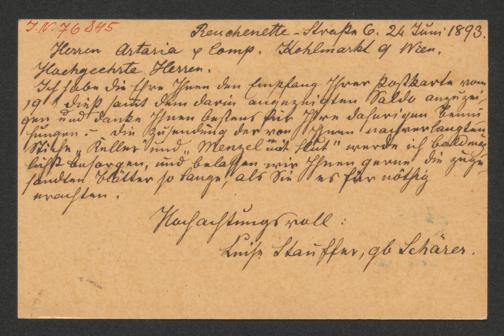 I.N. 76845
Reuchenette-Straße 6. 24 Juni 1893.
Herren Artaria & Comp. Kohlmarkt 9 Wien.
Hochgeehrte Herren.
Ich habe die Ehre Ihnen den Empfang Ihrer Postkarte vom
19 dieß samt dem darin angezeigten Saldo anzuzei-
gen und danke Ihnen bestens für Ihre dahirigen Bemü-
hungen. – die Zusendung der von Ihnen nachverlangten
Stiche „Keller" und „Menzel mit Hut" werde ich baldmög-
lichst besorgen, und belassen wir Ihnen gerne die zuge-
sandten Blätter so lange, als Sie es für nöthig
erachten.
Hochachtungsvoll:
Luise Stauffer, gb Schärer.